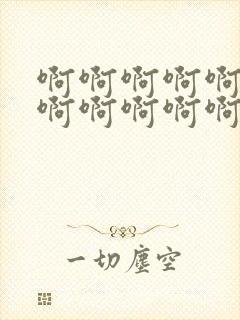 啊啊啊啊啊
啊啊啊啊啊
一切塵空